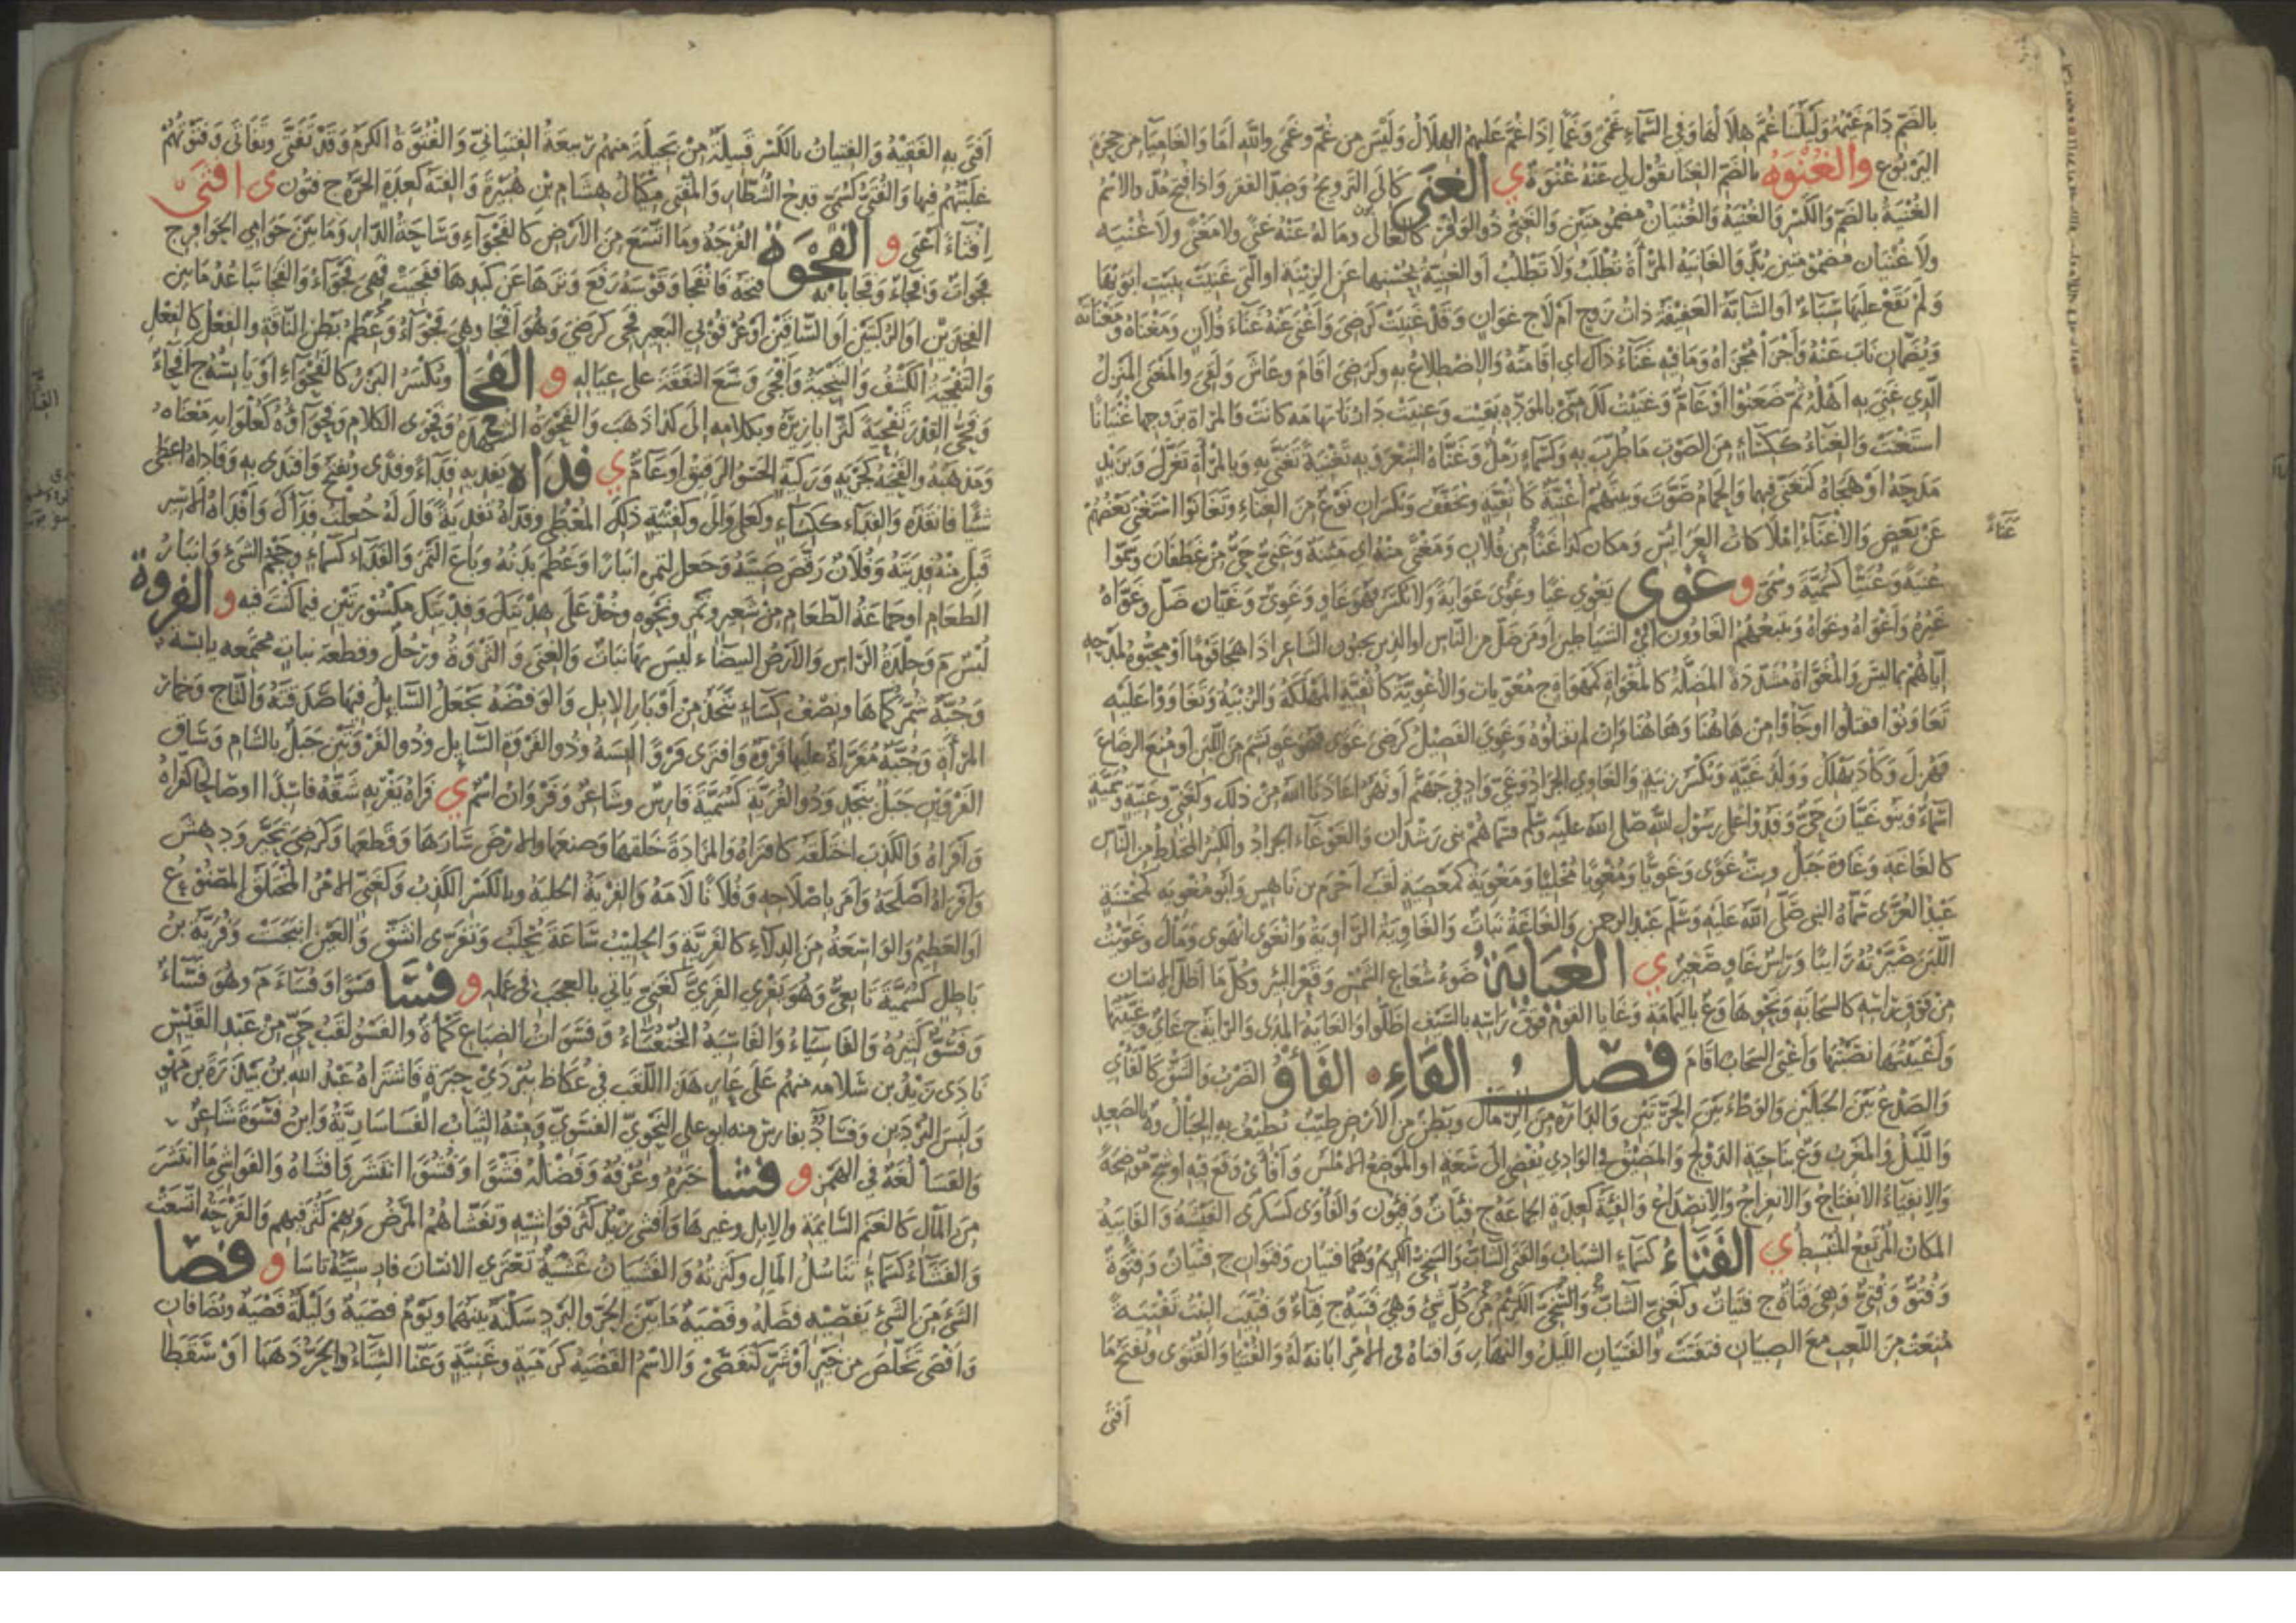 بالضم دام غيمها وليلتنا غم هلالها وفي السماء غمى وغما إذا غم عليهم الهلال وليس من غم وغمى والله أما والغامياء من جحرة
اليربوع والغنوة بالضم الغنا يقول لي عنه غنوة ي الغنى كإلى التزويج وضد الفقر وإذا فتح مد والاسم
الغنية بالضم والكسر والغنية والغنيان مضمومتين والغني ذو الوفر كالغاني وما له عنه غنى ولا مغنى ولا غنية
ولا غنيان مضمومتين بد والغانية المرأة تطلب ولا تطلب أو الغنية بحسنها عن الزينة أو التي غنيت ببيت أبويها
ولم يقع عليها سباء أو الشابة العفيفة ذات زوج أم لا ج غوان وقد غنيت كرضي وأغنى عنه غناء فلان ومغناه ومغناته
ويضمان ناب عنه وأجزأ مجزأه وما فيه غناء ذاك أي إقامته والاضطلاع به وكرضي أقام وعاش ولقي والمغنى المنزل
الذي غني به أهله ثم ظعنوا أو عام وغنيت لك مني بالمودة بقيت وغنيت دارنا تهامة كانت والمرأة بزوجها غنيانا
استغنت والغناء ككساء من الصوت ما طرب به وكسماء رمل وغناه الشعر وبه تغنية تغنى به وبالمرأة تغزل وبزيد
مدحه أو هجاه كتغنى فيهما والحمام صوت وبينهم أغنية كأثفية ويخفف ويكسران نوع من الغناء وتغانوا استغنى بعضهم
عن بعض والأغناء إملاكات العرائس ومكان كذا غنا من فلان ومغنى منه أي مئنة وغني حي من غطفان وسموا
غنية وغنيا كسمية وسمي و غوى يغوي غيا وغوي غواية ولا يكسر فهو غاو وغوي وغيان ضل وغواه
غيره وأغواه وغواه ويتبعهم الغاوون أي الشياطين أو من ضل من الناس أو الذين يحبون الشاعر إذا هجا قوما أو محبوه لمدحه
إياهم بما ليس والمغواة مشددة المضلة كالمغواة كمهواة ج مغويات والأغوية كأثفية المهلكة والزبية وتغاووا عليه
تعاونوا فقتلوا أو جاؤوا من هاهنا وهاهنا وإن لم يقتلوه وغوي الفصيل كرضي غوى فهو غو بشم من اللبن أو منع الرضاع
فهزل وكاد يهلك وولد غية ويكسر زنية والغاوي الجراد وغي واد في جهنم أو نهر أعاذنا الله من ذلك وكغني وغنية وسمية
أسماء وبنو غيان حي وفدوا على رسول الله صلى الله عليه وسلم فسماهم بني رشدان والغوغاء الجراد والكثير المختلط من الناس
كالغاغة وغاوة جبل وبت غوى وغويا ومغويا مخليا ومغوية كمعصية لقب أجرم بن ناهس وأبو مغوية كمحسنة
عبد العزى سماه النبي صلى الله عليه وسلم عبد الرحمن والغاغة نبات والغاوية الراوية وانغوى انهوى ومال وغويت
اللبن صيرته رائبا ورأس غاو صغير ي الغياية ضوء شعاع الشمس وقعر البئر وكل ما أظل الإنسان
من فوق رأسه كالسحابة ونحوها وع باليمامة وغايا القوم فوق رأسه بالسيف أظلوا والغاية المدى والراية ج غاي وغييتها
وأغييتها نصبتها وأغيى السحاب أقام فصل الفاء الفأو الضرب والشق كالفأي
والصدع بين الجبلين والوطئ بين الحرتين والدارة من الرمال وبطن من الأرض طيب تطيف به الجبال وة بالصعيد
والليل والمغرب وع بناحية الدولج والمضيق في الوادي يفضي إلى سعة أو الموضع الأملس وأفأى وقع فيه أو شج موضحة
والانفياء الانفتاح والانفراج والانصداع والفئة كعدة الجماعة ج فئات وفئون والفأوى كسكرى الفيشة والفائية
المكان المرتفع المنبسط ي الفتاء كسماء الشباب والفتى الشاب والسخي الكريم وهما فتيان وفتوان ج فتيان وفتوة
وفتو وفتي وهي فتاة ج فتيات وكغني الشاب والسخي الكريم من كل شيء وهي فتية ج فتاء وفتيت البنت تفتية
منعت من اللعب مع الصبيان فتفتت والفتيان الليل والنهار وأفتاه في الأمر أبانه له والفتيا والفتوى وتفتح ما
أفتى
غناء
أفتى به الفقيه والفتيان بالكسر قبيلة من بجيلة منهم رفاعة الفتياني والفتوة الكرم وقد تفتى وتفاتى وفتوتهم
غلبتهم فيها والفتي كسمي قدح الشطار والمفتي مكيال هشام بن هبيرة والفتة كعدة الحرة ج فتون ي أفتى
إفثاء أعيى و الفجوة الفرجة وما اتسع من الأرض كالفجواء وساحة الدار وما بين حوامي الحوافر ج
فجوات وفجاء وفجا بابه فتحه فانفجا وقوسه رفع وترها عن كبدها ففجيت فهي فجواء والفجا تباعد ما بين
الفخذين أو الركبتين أو الساقين أو عرقوبي البعير فجي كرضي وهو أفجا وهي فجواء وعظم بطن الناقة والفعل كالفعل
والتفجية الكشف والتنحية وأفجى وسع النفقة على عياله و الفحا ويكسر البزر كالفحواء أو يابسه ج أفحاء
وفحى القدر تفحية كثر أبازيره وبكلامه إلى كذا ذهب والفحوة الشهدة وفحوى الكلام وفحواؤه كغلوائه معناه
ومذهبه والفحية كجرية وركية الحسو الرقيق أو عام ي فداه يفديه فداء وفدى ويفتح وافتدى به وفاداه أعطى
شيئا فأنقذه والفداء ككساء وكعلى وإلى وكفتية ذلك المعطى وفداه تفدية قال له جعلت فداك وأفداه الأسير
قبل منه فديته وفلان رقص صبيه وجعل لتمره أنبارا وعظم بدنه وباع التمر والفداء كسماء وحجم الشيء وأنبار
الطعام أو جماعة الطعام من شعير وتمر ونحوه وخذ على هديتك وفديتك مكسورتين فيما كنت فيه و الفروة
لبس م وجلدة الرأس والأرض البيضاء ليس بها نبات والغنى والثروة ورجل وقطعة نبات مجتمعة يابسة
وجبة شمر كماها ونصف كساء يتخذ من أوبار الإبل والوفضة يجعل السائل فيها صدقته والتاج وخمار
المرأة وجبة مفراة عليها فروة وافترى فروا لبسه وذو الفروة السائل وذو الفروين جبل بالشام وساق
الفروين جبل بنجد وذو الفرية كسمية فارس وشاعر وفروان اسم ي فراه يفريه شقه فاسدا أو صالحا كفراه
وأفراه والكذب اختلقه كافتراه والمزادة خلقها وصنعها والأرض سارها وقطعها وكرضي تحير ودهش
وأفراه أصلحه وأمر بإصلاحه وفلانا لامه والفرية الجلبة وبالكسر الكذب وكغني الأمر المختلق المصنوع
أو العظيم والواسعة من الدلاء كالفرية والحليب ساعة يحلب وتفرى انشق والعين انبجست وفرية بن
ماطل كسمية تابعي وهو يفري الفري كغني يأتي بالعجب في عمله و فسا فسوا وفساء م وهو فساء
وفسو كثيره والفاسياء والفاسية الخنفساء وفسوات الضباع كمأة والفسو لقب حي من عبد القيس
نادى زيد بن سلامة منهم على عار هذا اللقب في عكاظ ببردي حبرة فاشتراه عبد الله بن بيدرة بن مهو
ولبس البردين وفسا د بفارس منه أبو علي النحوي الفسوي ومنه الثياب الفساسارية وابن فسوة شاعر
والفسا لغة في الهمز و فشا خبره وعرفه وفضله فشوا وفشوا انتشر وأفشاه والفواشي ما انتشر
من المال كالغنم السائمة والإبل وغيرها وأفشى زيد كثر فواشيه وتفشاهم المرض وبهم كثر فيهم والقرحة اتسعت
والفشاء كسماء تناسل المال وكثرته والفشيان غشية تعتري الإنسان فارسيته تاسا و فصا
الشيء من الشيء يفصيه فصله وفصية ما بين الحر والبرد سكتة بينهما ويوم فصية وليلة فصية ويضافان
وأفصى تخلص من خير أو شر كتفصى والاسم الفصية كرمية وغنية وعنا الشتاء والحر ذهبا أو سقطا